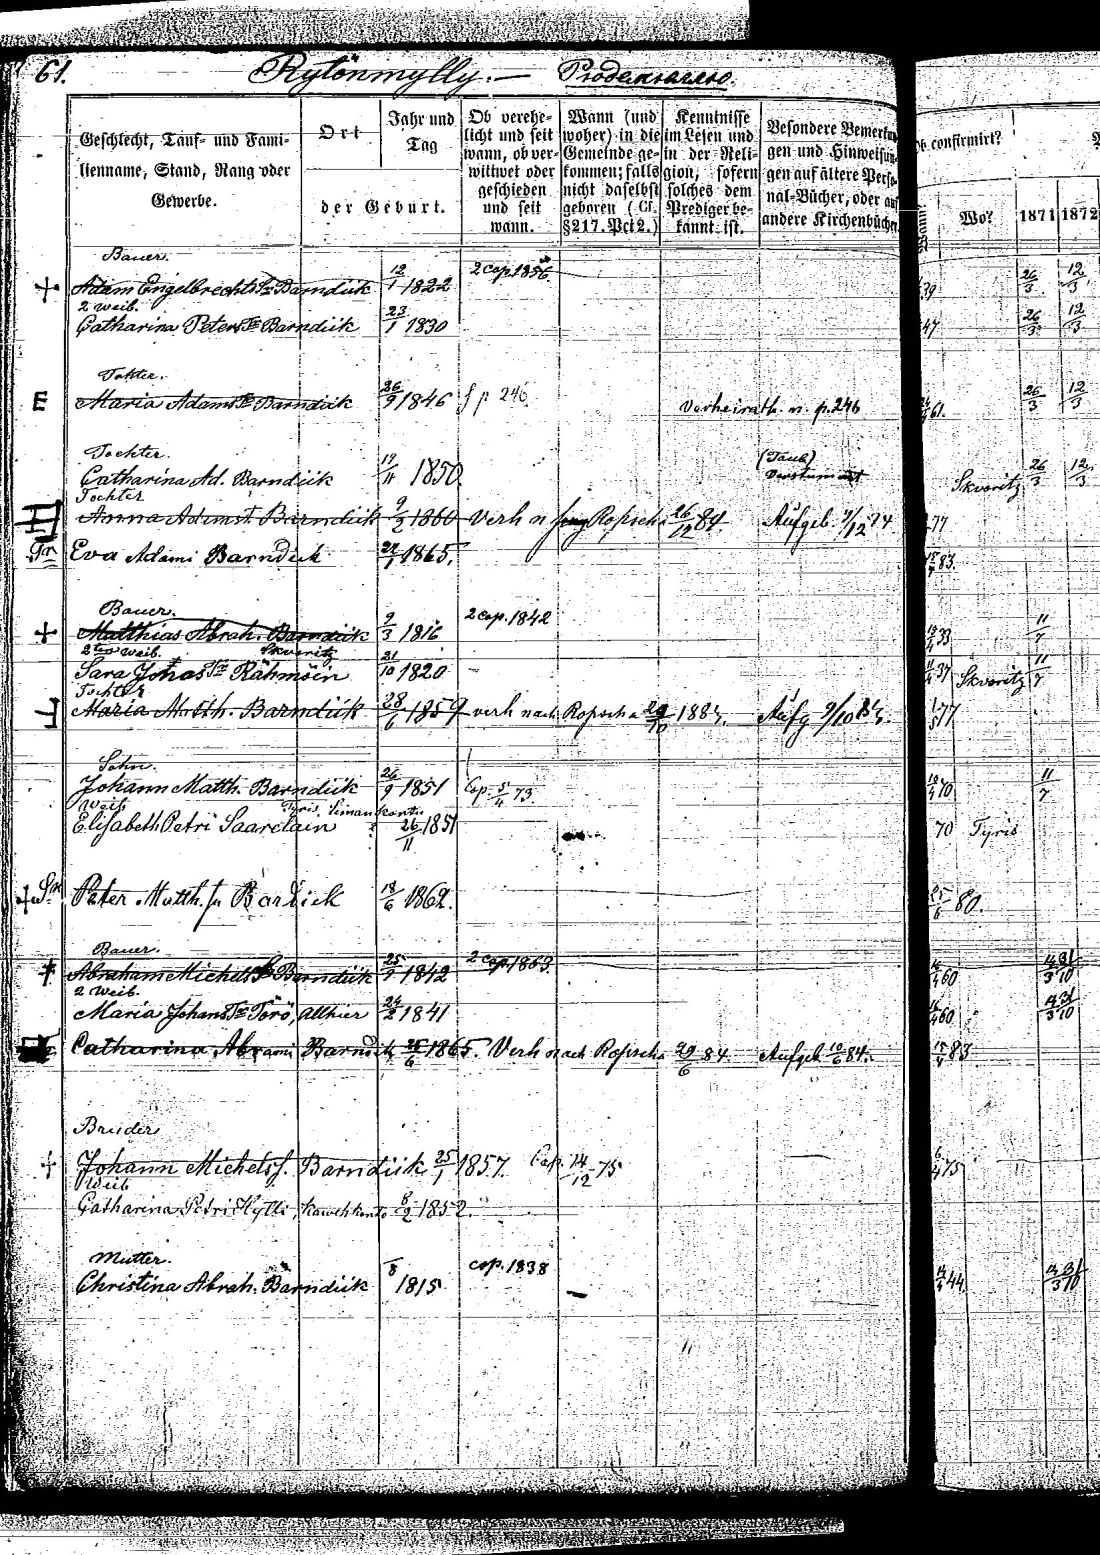 61. Rytönmylly. — Рюдемюллю.
Geschlecht, Tauf- und Fami-
lienname, Stand, Rang oder
Gewerbe.
Ort
Jahr und
Tag
der Geburt.
Ob verehe-
licht und seit
wann, ob ver-
wittwet oder
geschieden
und seit
wann.
Wann (und
woher) in die
Gemeinde ge-
kommen; falls
nicht daselbst
geboren (Cf.
§ 217. Pct 2.)
Kenntnisse
im Lesen und
in der Reli-
gion, sofern
solches dem
Prediger be-
kannt ist.
Besondere Bemerkun-
gen und Hinweisun-
gen auf ältere Perso-
nal-Bücher, oder auf
andere Kirchenbücher
Ob confirmirt?
Wann?
Wo?
1871 1872
Bauer.
+ Adam Engelbrechts Sn Barndük 12/1 1822 2 cop. 1856. 39 26/3 12/3
2 Weib.
Catharina Peters Tr Barndük 23/1 1830 47 26/3 12/3
Tohter.
E Maria Adams Tr Barndük 26/9 1846 f p 246 Verheirath. n. p. 246 61. 26/3 12/3
Tochter.
Catharina Ad. Barndük 19/4 1850 (Taub) Skvoritz 26/3 12/3
Tochter
Anna Adamst. Barndük 9/2 1860 Verh n Ropscha 26/12 84. Aufgeb. 77
Eva Adami Barndük 1865. 83.
Bauer.
+ Matthias Abrah. Barndük 9/3 1816 2 cop. 1842 33 11/7
2tes Weib. Skvoritz
Sara Johas Tr Rähmöin 21/10 1820 37 Skvoritz 11/7
Tochter
Maria Matth. Barndük 28/6 1859 verh nach Ropscha 1884. Aufg 9/10 84. 77
Sohn.
Johann Matth. Barndük 26/9 1851 Cop. 5/4 73. 70 11/7
Weib Tyris. Simankontu
Elisabeth Petri Saarelain 26/11 1851 70 Tyris
+ Sn Peter Matth. fn Bardick 18/6 1862. 80.
Bauer.
+ Abraham Michels Sn Barndük 1842 2 cop. 1863. 60
2 Weib.
Maria Johans Tr Törö, Allhier 24/2 1841 60
Catharina Abrami Barndük 1865. Verh nach Ropscha 84 Aufgeb 10/6 84. 83
Bruder
+ Johann Michels f. Barndük 25/1 1857. Cop. 14/12 75 75
Weib
Catharina Petri Hytti, 8/2 1852.
Mutter.
Christina Abrah. Barndük 1815 cop. 1838 44.